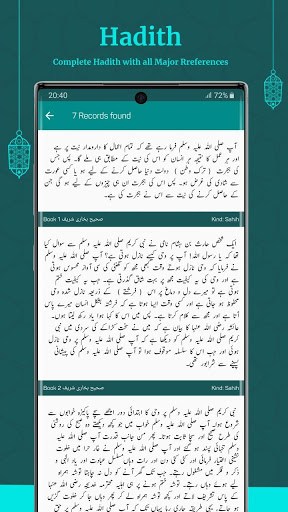 Hadith
Complete Hadith with all Major Rreferences
20:40
72%
7 Records found
آپ صلی اللہ علیہ وسلم فرما رہے تھے کہ تمام اعمال کا دارومدار نیت پر ہے
اور ہر عمل کا نتیجہ ہر انسان کو اس کی نیت کے مطابق ہی ملے گا۔ پس جس
کی ہجرت ( ترک وطن ) دولت دنیا حاصل کرنے کے لیے ہو یا کسی عورت
سے شادی کی غرض ہو۔ پس اس کی ہجرت ان ہی چیزوں کے لیے ہو گی جن
کے حاصل کرنے کی نیت سے اس نے ہجرت کی ہے۔
Book 1 صحیح بخاری شریف Kind: Sahih
ایک شخص حارث بن ہشام نامی نے نبی کریم صلی اللہ علیہ وسلم سے سوال کیا
تھا کہ یا رسول اللہ! آپ پر وحی کیسے نازل ہوتی ہے؟ آپ صلی اللہ علیہ وسلم
نے فرمایا کہ وحی نازل ہوتے وقت کبھی مجھ کو گھنٹی کی سی آواز محسوس ہوتی
ہے اور وحی کی یہ کیفیت مجھ پر بہت شاق گذرتی ہے۔ جب یہ کیفیت ختم
ہوتی ہے تو میرے دل و دماغ پر اس ( فرشتے ) کے ذریعہ نازل شدہ وحی
محفوظ ہو جاتی ہے اور کسی وقت ایسا ہوتا ہے کہ فرشتہ بشکل انسان میرے پاس
آتا ہے اور مجھ سے کلام کرتا ہے۔ پس میں اس کا کہا ہوا یاد رکھ لیتا ہوں۔
عائشہ رضی اللہ عنہا کا بیان ہے کہ میں نے سخت کڑاکے کی سردی میں نبی
کریم صلی اللہ علیہ وسلم کو دیکھا ہے کہ آپ صلی اللہ علیہ وسلم پر وحی نازل
ہوئی اور جب اس کا سلسلہ موقوف ہوا تو آپ صلی اللہ علیہ وسلم کی پیشانی
پسینے سے شرابور تھی۔
Book 2 صحیح بخاری شریف Kind: Sahih
نبی کریم صلی اللہ علیہ وسلم پر وحی کا ابتدائی دور اچھے سچے پاکیزہ خوابوں سے
شروع ہوا۔ آپ صلی اللہ علیہ وسلم خواب میں جو کچھ دیکھتے وہ صبح کی روشنی
کی طرح صحیح اور سچا ثابت ہوتا۔ پھر من جانب قدرت آپ صلی اللہ علیہ
وسلم تنہائی پسند ہو گئے اور آپ صلی اللہ علیہ وسلم نے غار حرا میں خلوت
نشینی اختیار فرمائی اور کئی کئی دن اور رات وہاں مسلسل عبادت اور یاد الٰہی و
ذکر و فکر میں مشغول رہتے۔ جب تک گھر آنے کو دل نہ چاہتا توشہ ہمراہ
لیے ہوئے وہاں رہتے۔ توشہ ختم ہونے پر ہی اہلیہ محترمہ خدیجہ رضی اللہ عنہا
کے پاس تشریف لاتے اور کچھ توشہ ہمراہ لے کر پھر وہاں جا کر خلوت گزیں